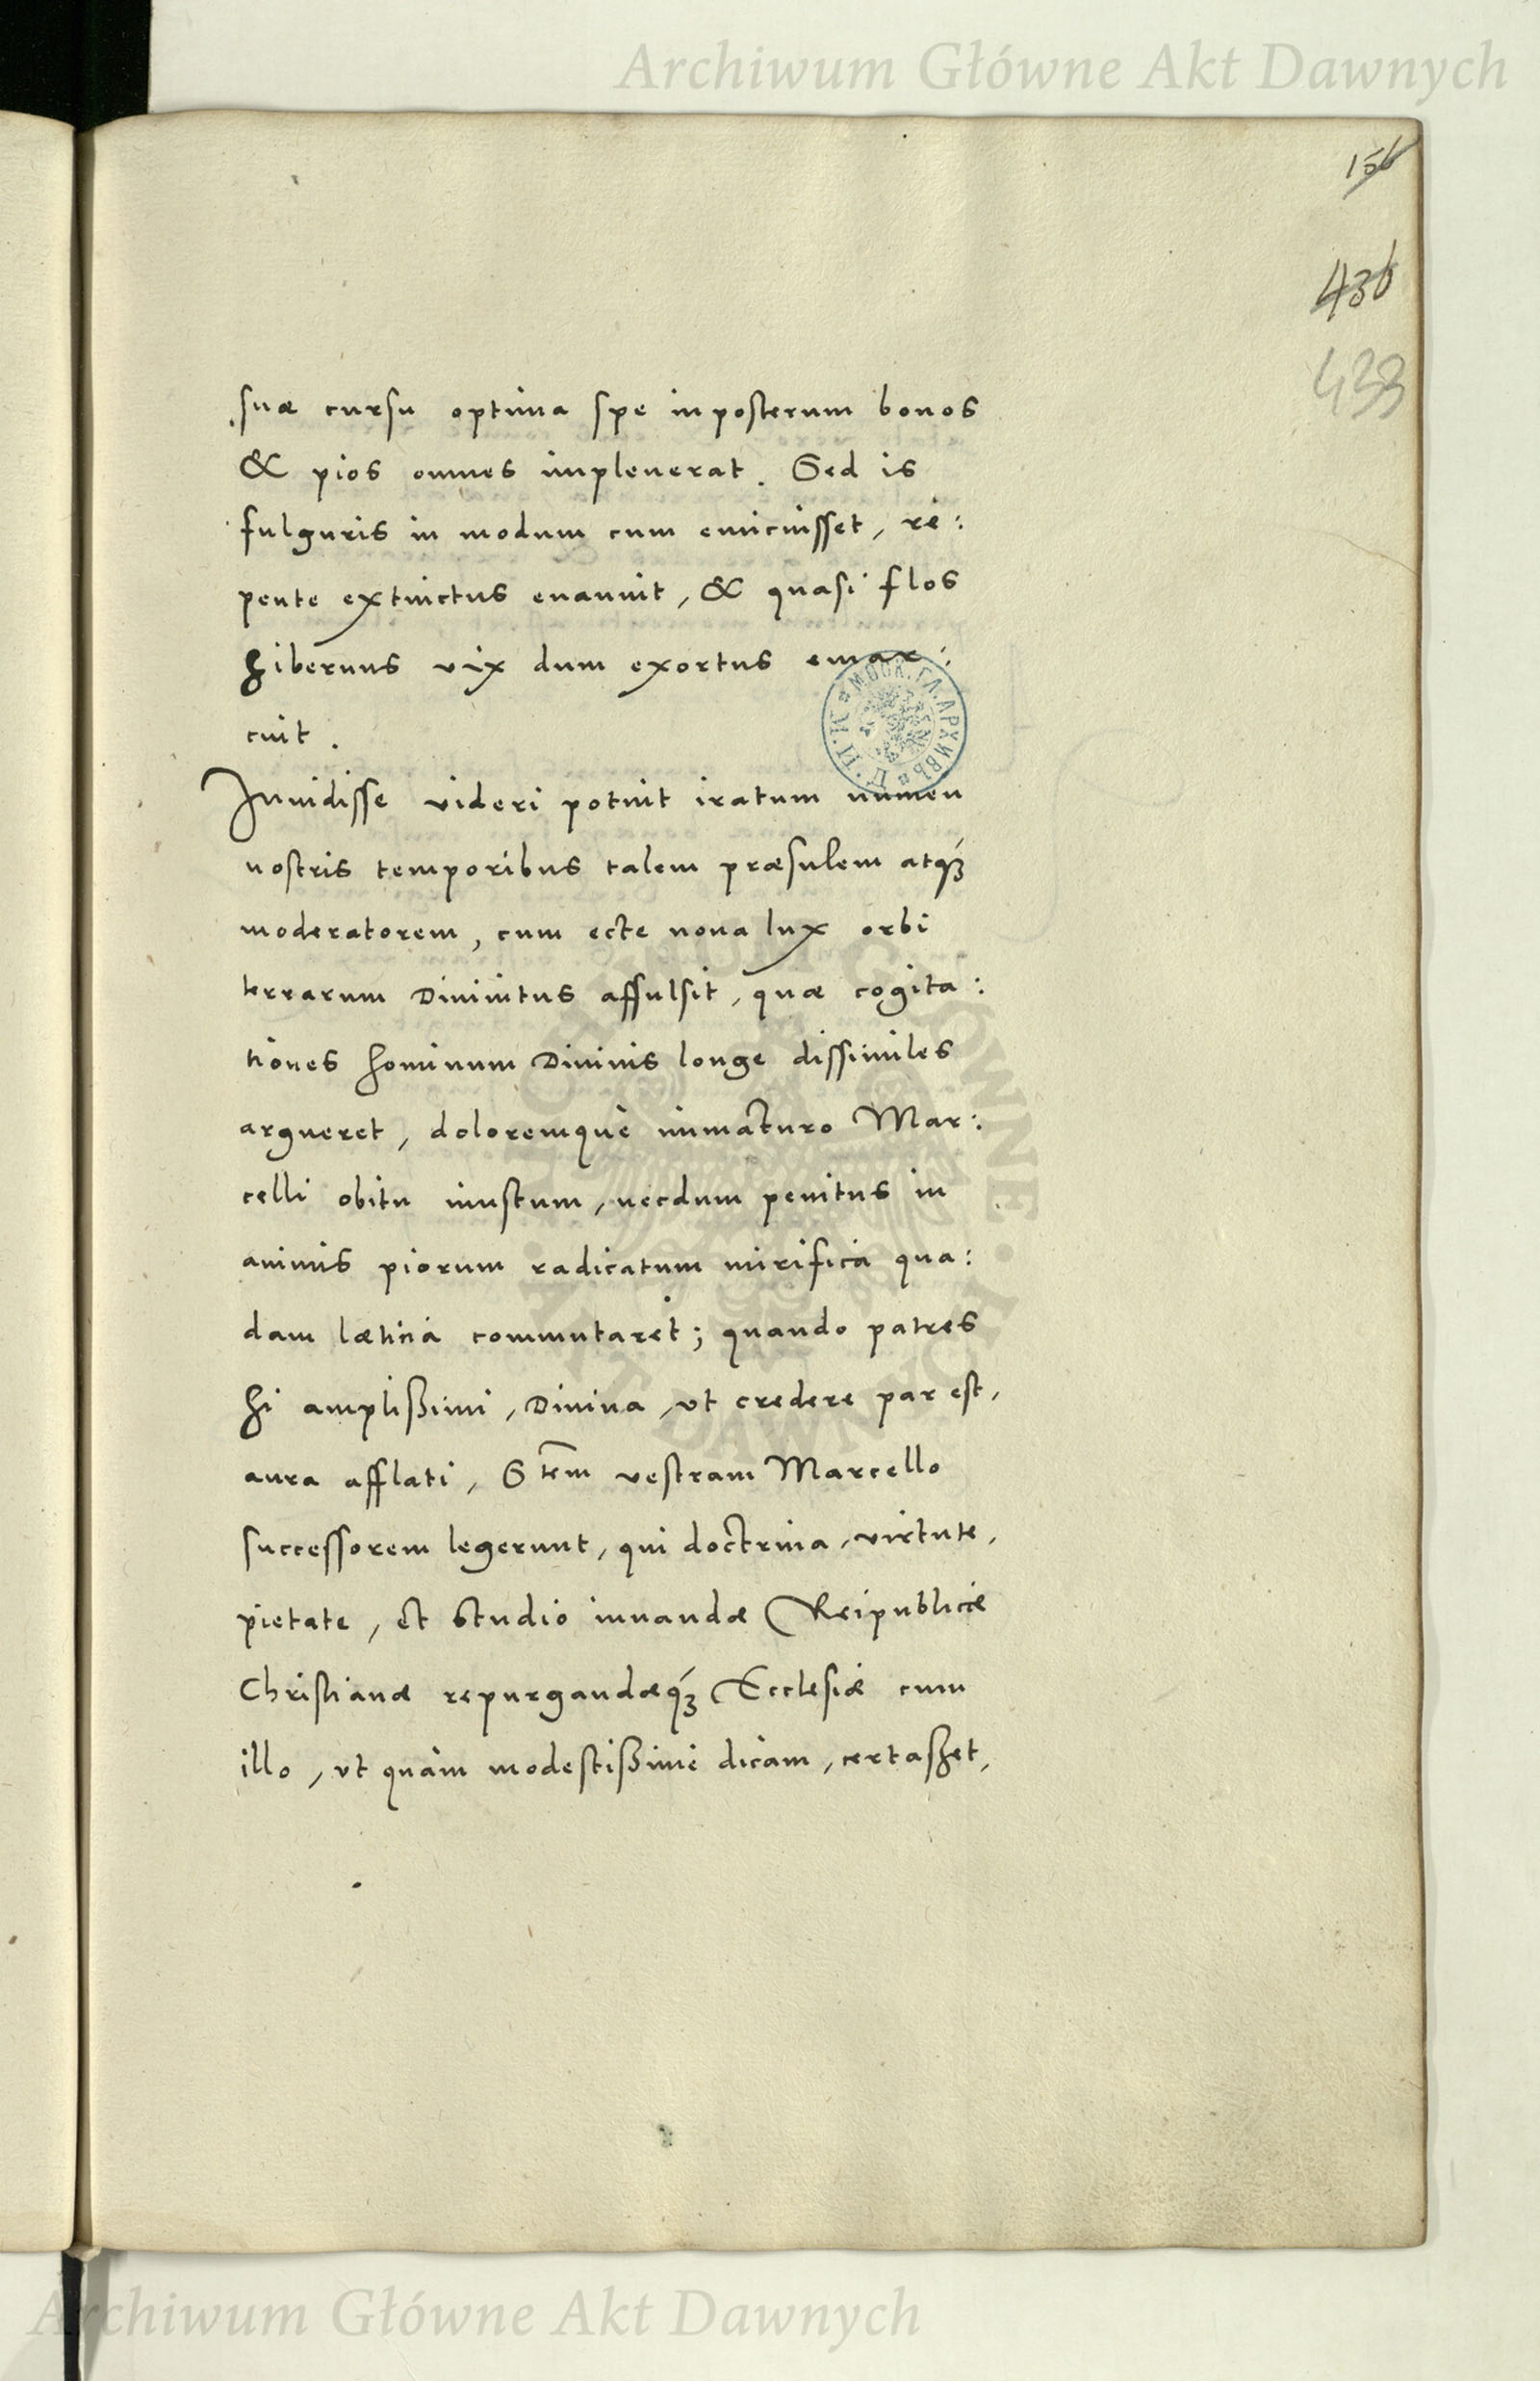 Archiwum Główne Akt Dawnych
156
436
433
suæ cursu optima spe in posterum bonos
& pios omnes impleuerat. Sed is
fulguris in modum cum emicuisset, re:
pente extinctus euanuit, & quasi flos
hibernus vix dum exortus emar:
cuit.
Inuidisse videri potuit iratum numen
nostris temporibus talem præsulem atq́ꝫ
moderatorem, cum ecte noua lux orbi
terrarum Diuinitus affulsit, quæ cogita:
tiones hominum Diuinis longe dissimiles
argueret, doloremquè immaturo Mar:
celli obitu inustum, necdum penitus in
animis piorum radicatum mirifica qua:
dam lætitia commutaret; quando patres
hi amplißimi, Diuina, vt credere par est,
aura afflati, Stem vestram Marcello
successorem legerunt, qui doctrina, virtute,
pietate, et studio iuuandæ Reipublicæ
Christianæ repurgandæq́ꝫ Ecclesiæ cum
illo, vt quàm modestißimè dicam, certaßet,
МОСК. ГЛ. АРХИВЪ
ARCHIWUM GŁÓWNE AKT DAWNYCH
Archiwum Główne Akt Dawnych